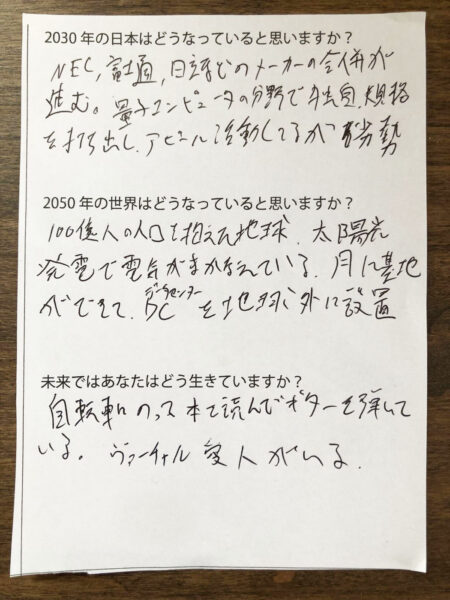 2030 年の日本はどうなっていると思いますか？
NEC, 富士通, 日立などのメーカーの合併が
進む。量子コンピュータの分野で独自規格
を打ち出し、アピール活動してるが劣勢
2050 年の世界はどうなっていると思いますか？
100億人の人口を抱えた地球、太陽光
発電で電気がまかなえている。月に基地
データセンター
ができて、DCを地球外に設置
未来ではあなたはどう生きていますか？
自転車にのって本を読んでギターを弾いて
いる。ヴァーチャル愛人がいる。